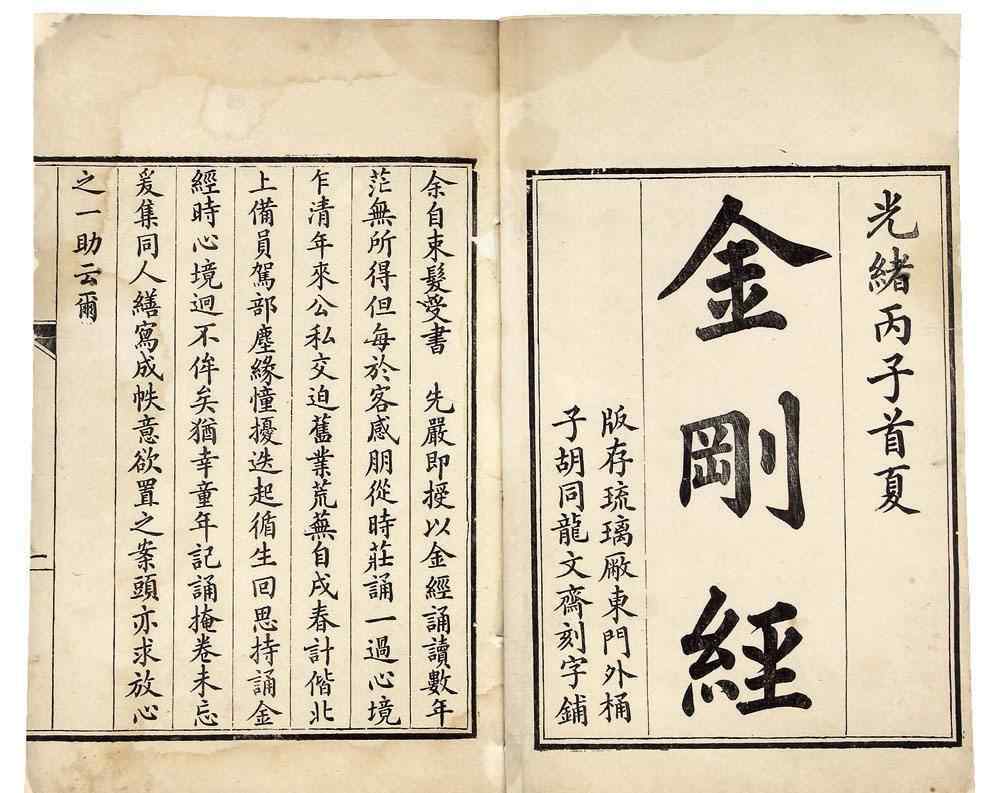 光緒丙子首夏
金剛經
版存琉璃厰東門外桶
子胡同龍文齋刻字鋪
余自束髮受書　先嚴即授以金經誦讀數年
茫無所得但每於客感朋從時莊誦一過心境
乍清年來公私交迫舊業荒蕪自戌春計偕北
上備員駕部塵緣憧擾迭起循生回思持誦金
經時心境迥不侔矣猶幸童年記誦掩卷未忘
爰集同人繕寫成帙意欲置之案頭亦求放心
之一助云爾